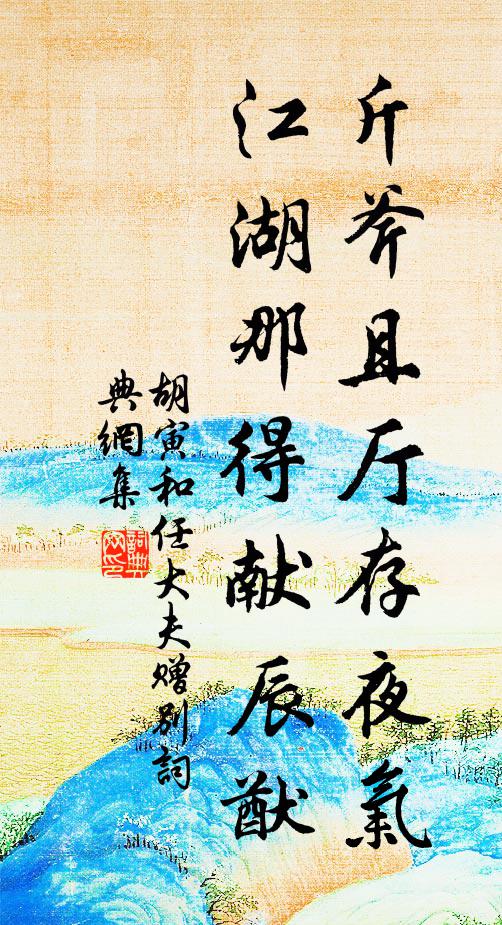 斤斧且厅存夜氣
江湖那得献辰猷
胡寅和任大夫赠别詞
典網集
詞典